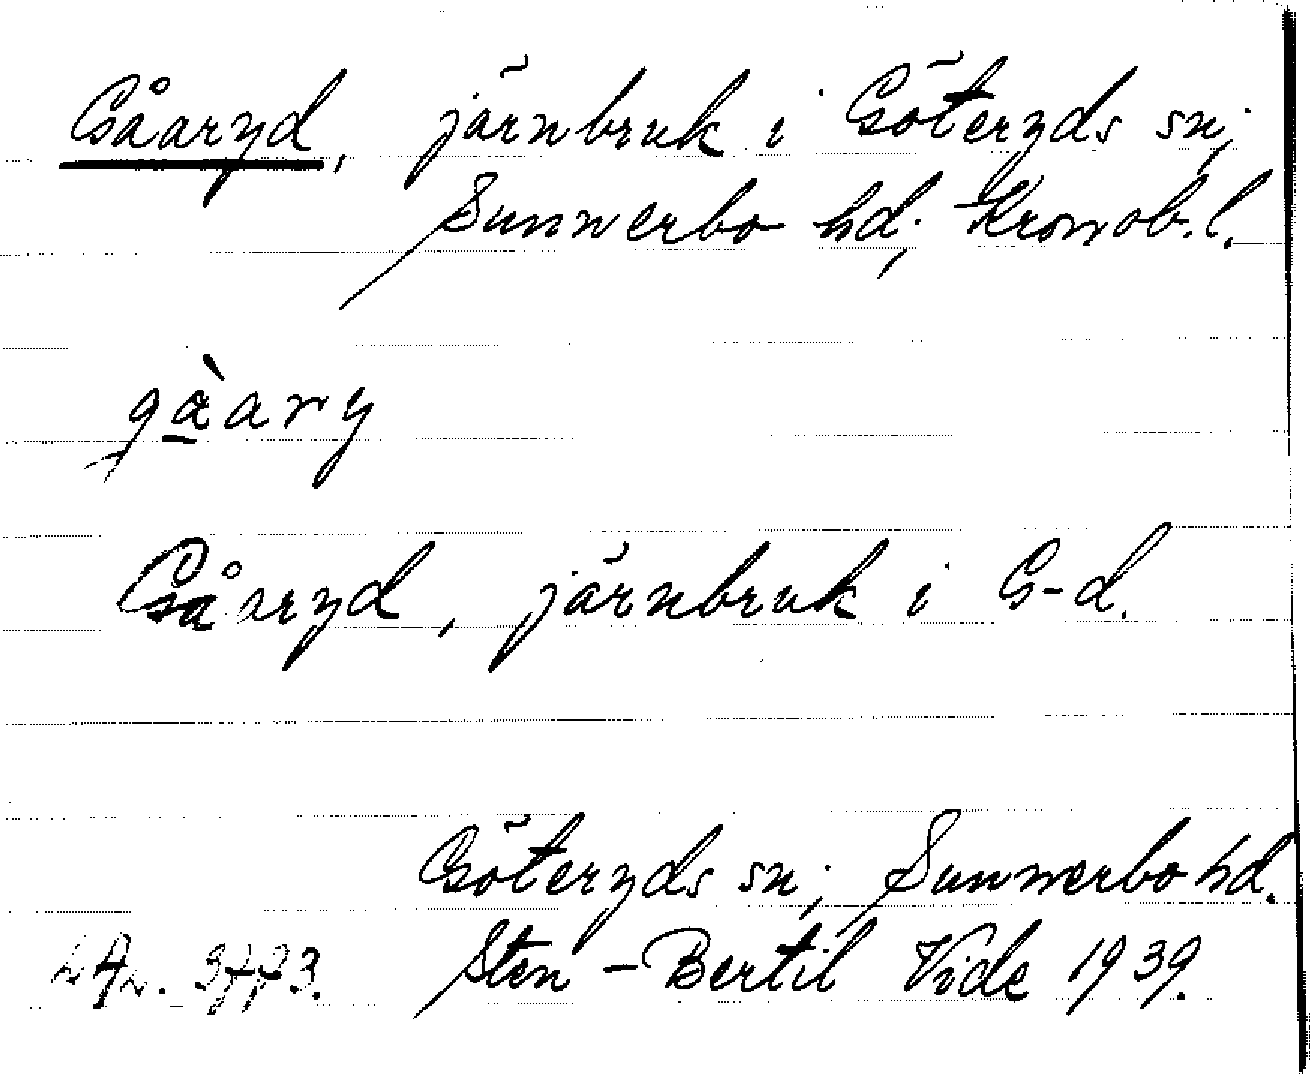 Gåaryd, järnbruk i Göteryds sn;
Sunnerbo hd; Kronob. l.
gàary
Gåaryd, järnbruk i G-d.
Göteryds sn; Sunnerbo hd.
Sten-Bertil Vide 1939.